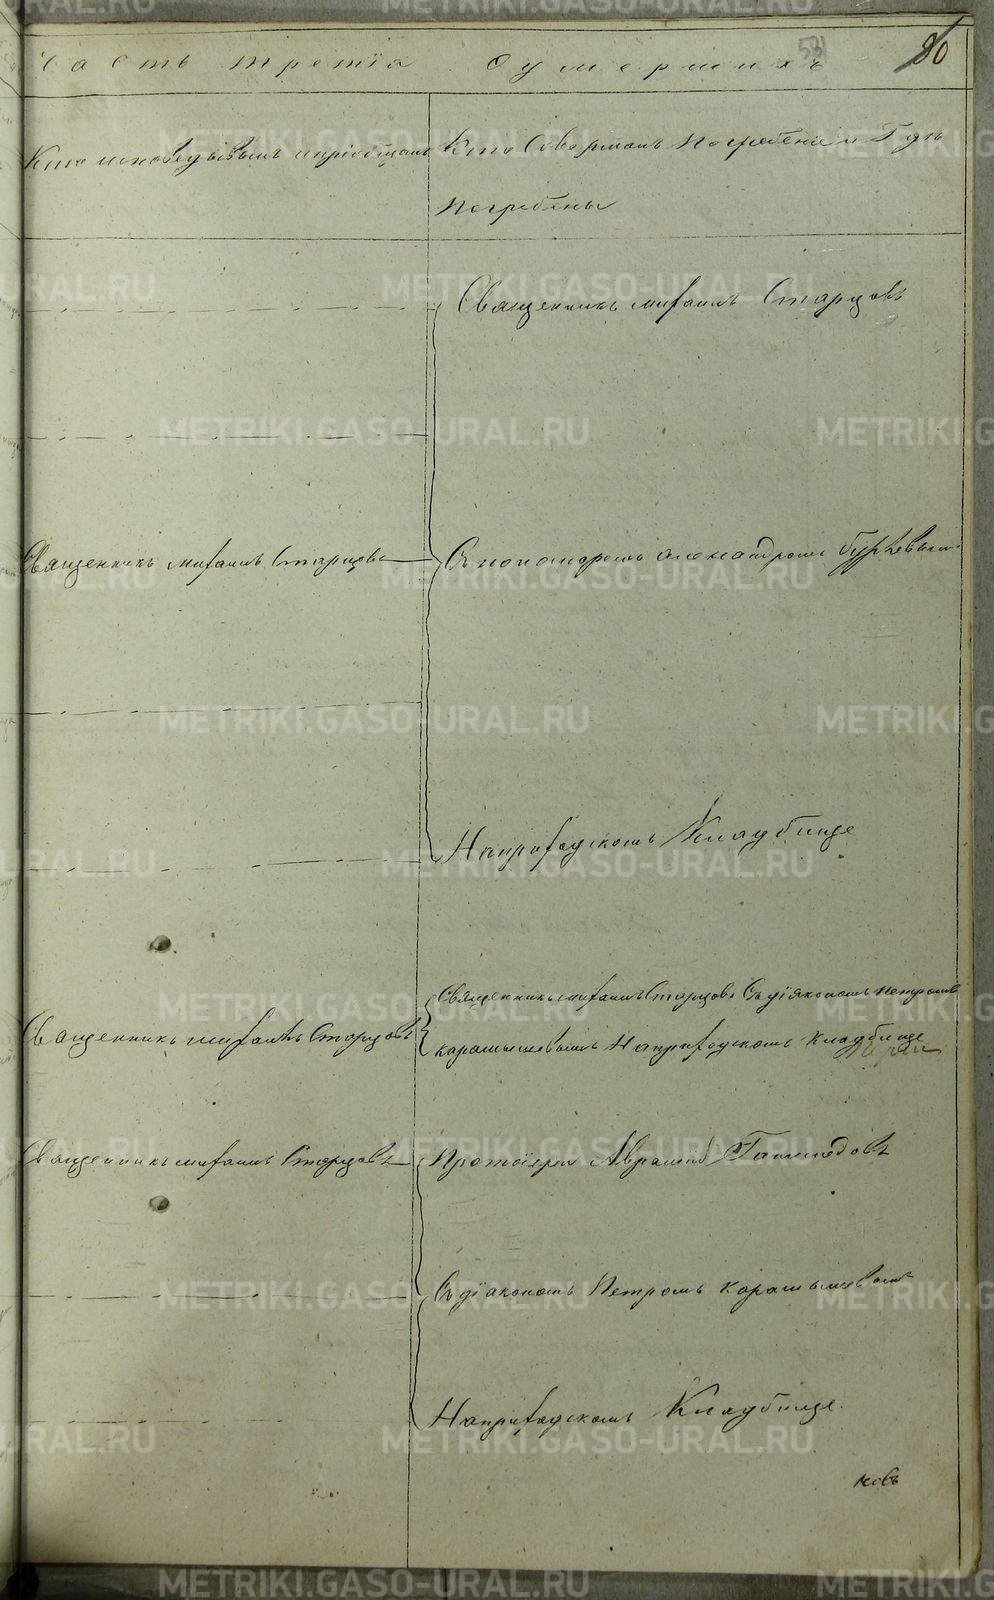 Часть третїя о умершихъ
531
80
Кто исповедывалъ и прїобщалъ
Кто Совершалъ Погребенїе и Гдѣ
Погребены
Священникъ михаилъ Старцовъ
Священникъ михаилъ Старцовъ
Съ пономаремъ александромъ
На приходскомъ Кладбище
Священникъ михаилъ Старцовъ
Священникъ михаилъ Старцовъ Съ дїякономъ петромъ
карамышевымъ На приходскомъ кладбище
Священникъ михаилъ Старцовъ
Протоїерей Аврамій
Съ дїакономъ Петромъ карамышевымъ
На приходскомъ Кладбище.
ковъ
METRIKI.GASO-URAL.RU